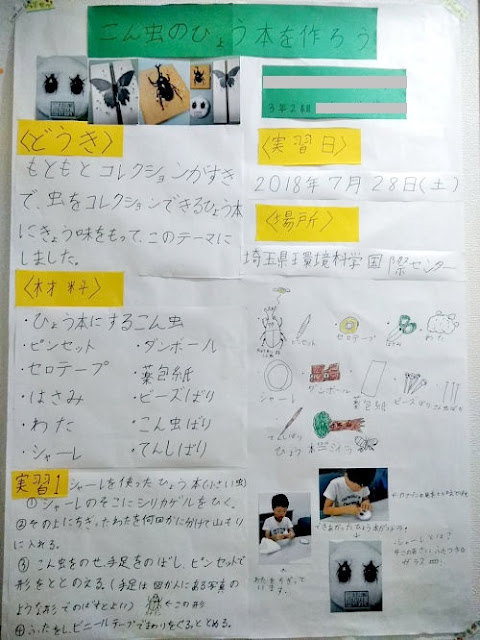 こん虫のひょう本を作ろう
3年2組
〈どうき〉
もともとコレクションがすき
で、虫をコレクションできるひょう本
にきょう味をもって、このテーマに
しました。
〈実習日〉
2018年7月28日(土)
〈場所〉
埼玉県環境科学国際センター
〈材料〉
・ひょう本にするこん虫
・ピンセット
・ダンボール
・セロテープ
・薬包紙
・はさみ
・ビーズばり
・わた
・こん虫ばり
・シャーレ
・てんしばり
ピンセット
セロテープ
はさみ
わた
シャーレ
ダンボール
薬包紙
ビーズばり
こん虫ばり
てんしばり
ひょう本
実習1
シャーレを使ったひょう本(小さい虫)
①シャーレのそこにシリカゲルをひく。
②その上にちぎったわたを何回かに分けて山もり
に入れる。
③こん虫をのせ、手足をのばし、ピンセットで
形をととのえる。(手足は図かんにある写真の
ような形でのばすとよい)
←この形
④ふたをし、ビニールテープでまわりをぐるっととめる。
・シャーレとは
ガラス皿。
います。